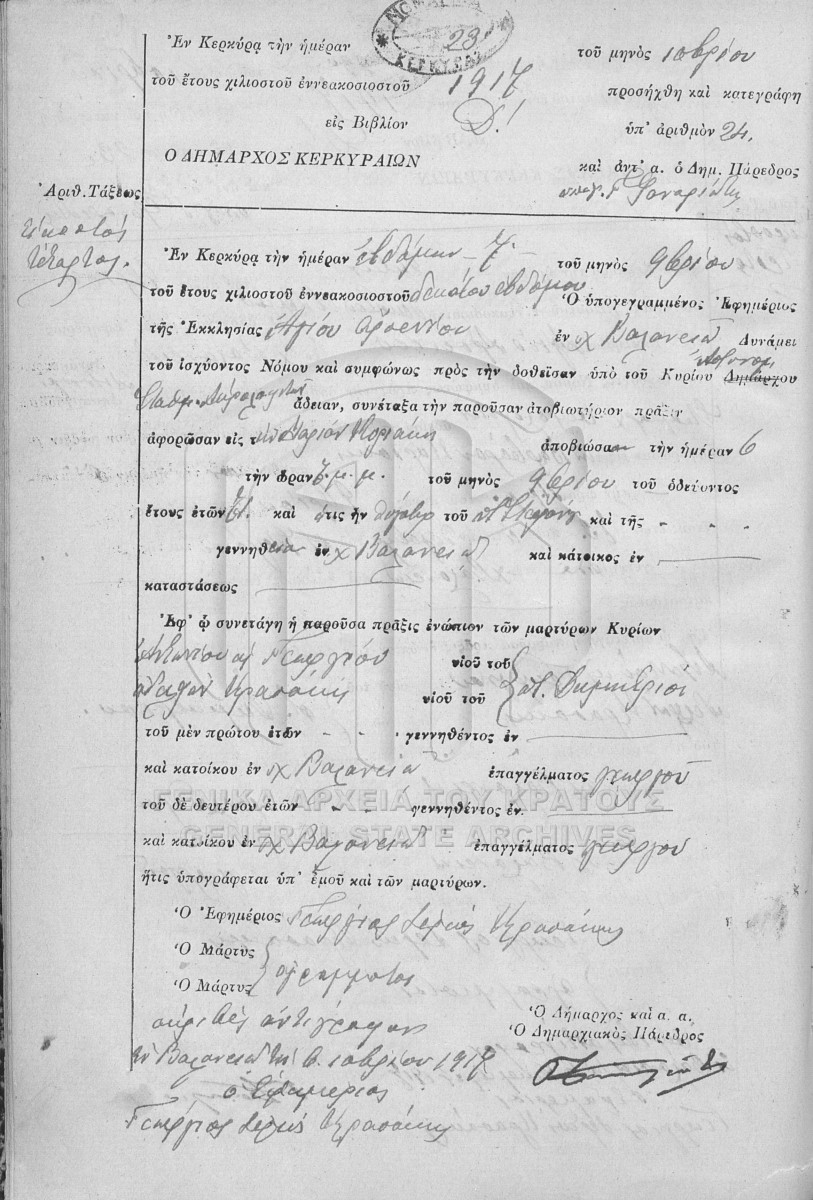 ΚΕΡΚΥΡΑ
Ἐν Κερκύρᾳ τὴν ἡμέραν 23 τοῦ μηνὸς 10βρίου
τοῦ ἔτους χιλιοστοῦ ἐννεακοσιοστοῦ 1917 προσήχθη καὶ κατεγράφη
εἰς Βιβλίον Δ! ὑπ' ἀριθμὸν 24,
Ο ΔΗΜΑΡΧΟΣ ΚΕΡΚΥΡΑΙΩΝ καὶ ἀντ' α. ὁ Δημ. Πάρεδρος
Ἀριθ. Τάξεως
εἰκοστός
τέταρτος.
Ἐν Κερκύρᾳ τὴν ἡμέραν ἑβδόμην 7 τοῦ μηνὸς 9βρίου
τοῦ ἔτους χιλιοστοῦ ἐννεακοσιοστοῦ δεκάτου ἑβδόμου Ὁ ὑπογεγραμμένος Ἐφημέριος
τῆς Ἐκκλησίας Ἁγίου ἐν χ Βαλανειό Δυνάμει
τοῦ ἰσχύοντος Νόμου καὶ συμφώνως πρὸς τὴν δοθεῖσαν ὑπὸ τοῦ Κυρίου Δημάρχου
ἄδειαν, συνέταξα τὴν παροῦσαν ἀποβιωτήριον πρᾶξιν
ἀφορῶσαν εἰς τὴν ἀποβιώσασαν τὴν ἡμέραν 6
τὴν ὥραν 7 μ.μ. τοῦ μηνὸς 9βρίου τοῦ ὁδεύοντος
ἔτους ἐτῶν καὶ ἥτις ἦν θυγάτηρ τοῦ καὶ τῆς
γεννηθεῖσα ἐν χ Βαλανειό καὶ κάτοικος ἐν
καταστάσεως
Ἐφ' ᾧ συνετάγη ἡ παροῦσα πρᾶξις ἐνώπιον τῶν μαρτύρων Κυρίων
Γεωργίου υἱοῦ τοῦ
Κρασάκη υἱοῦ τοῦ Δημητρίου
τοῦ μὲν πρώτου ἐτῶν γεννηθέντος ἐν
καὶ κατοίκου ἐν χ Βαλανειό ἐπαγγέλματος γεωργοῦ
ΓΕΝΙΚΑ ΑΡΧΕΙΑ ΤΟΥ ΚΡΑΤΟΥΣ
τοῦ δὲ δευτέρου ἐτῶν γεννηθέντος ἐν
GENERAL STATE ARCHIVES
καὶ κατοίκου ἐν χ Βαλανειό ἐπαγγέλματος γεωργοῦ
ἥτις ὑπογράφεται ὑπ' ἐμοῦ καὶ τῶν μαρτύρων.
Ὁ Ἐφημέριος Γεώργιος ἱερεύς Κρασάκης
Ὁ Μάρτυς
Ὁ Μάρτυς ἀγράμματοι
ἀκριβές ἀντίγραφον
ἐν Βαλανειό τῇ 6 10βρίου 1917
ὁ Ἐφημέριος
Γεώργιος ἱερεύς Κρασάκης
Ὁ Δήμαρχος καὶ α. α.
Ὁ Δημαρχιακὸς Πάρεδρος